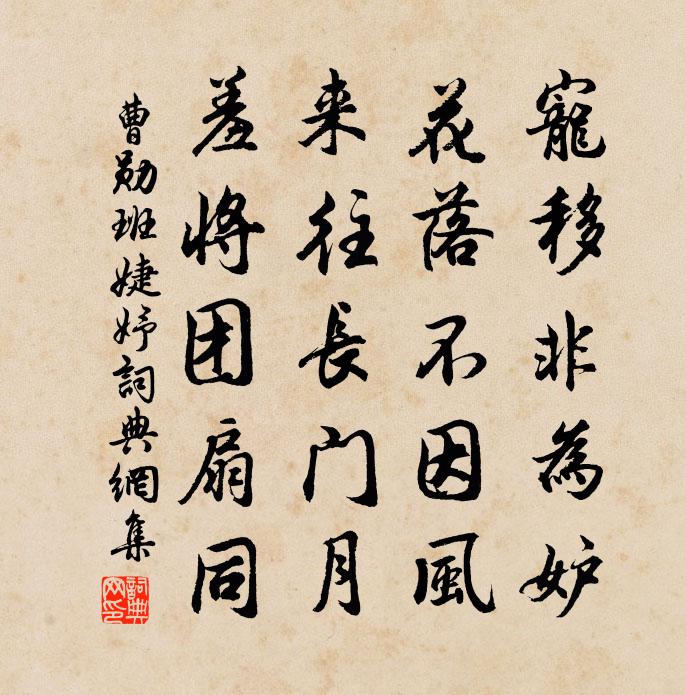 寵移非為妒
花落不因風
来往長門月
羞將团扇同
曹勛班婕妤詞典網集
詞典网印